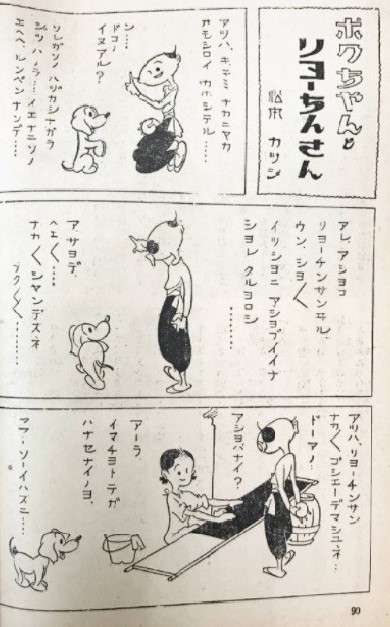 ポクちゃんと
リョーちんさん
松本 カツジ
アツハ、キミモ ナカニヤカ
オモシロイ カホシテル……
シ……
ドコノ
イヌアル?
ソレガソノ ハヅカシナガラ
ジツハノラ…イエナニソノ
エヘヘ、ルンペン ナンデ……
アレ、アシヨコ
リヨーチンサンヰル、
ウン、シヨ〱
イツシヨニ アショブイイナ
ショレ クルヨロシ
………
ア、サヨデ、
ヘエ〱……
ナカ〱シヤンデスネ
アツハ、リヨーチンサン
ナカ〱ゴシエーデマシユネ…
ドーアノ…
アショバナイ?
アーラ
イマチヨトテガ
ハナセナイノヨ、
マア、ソーイハズニ……
90